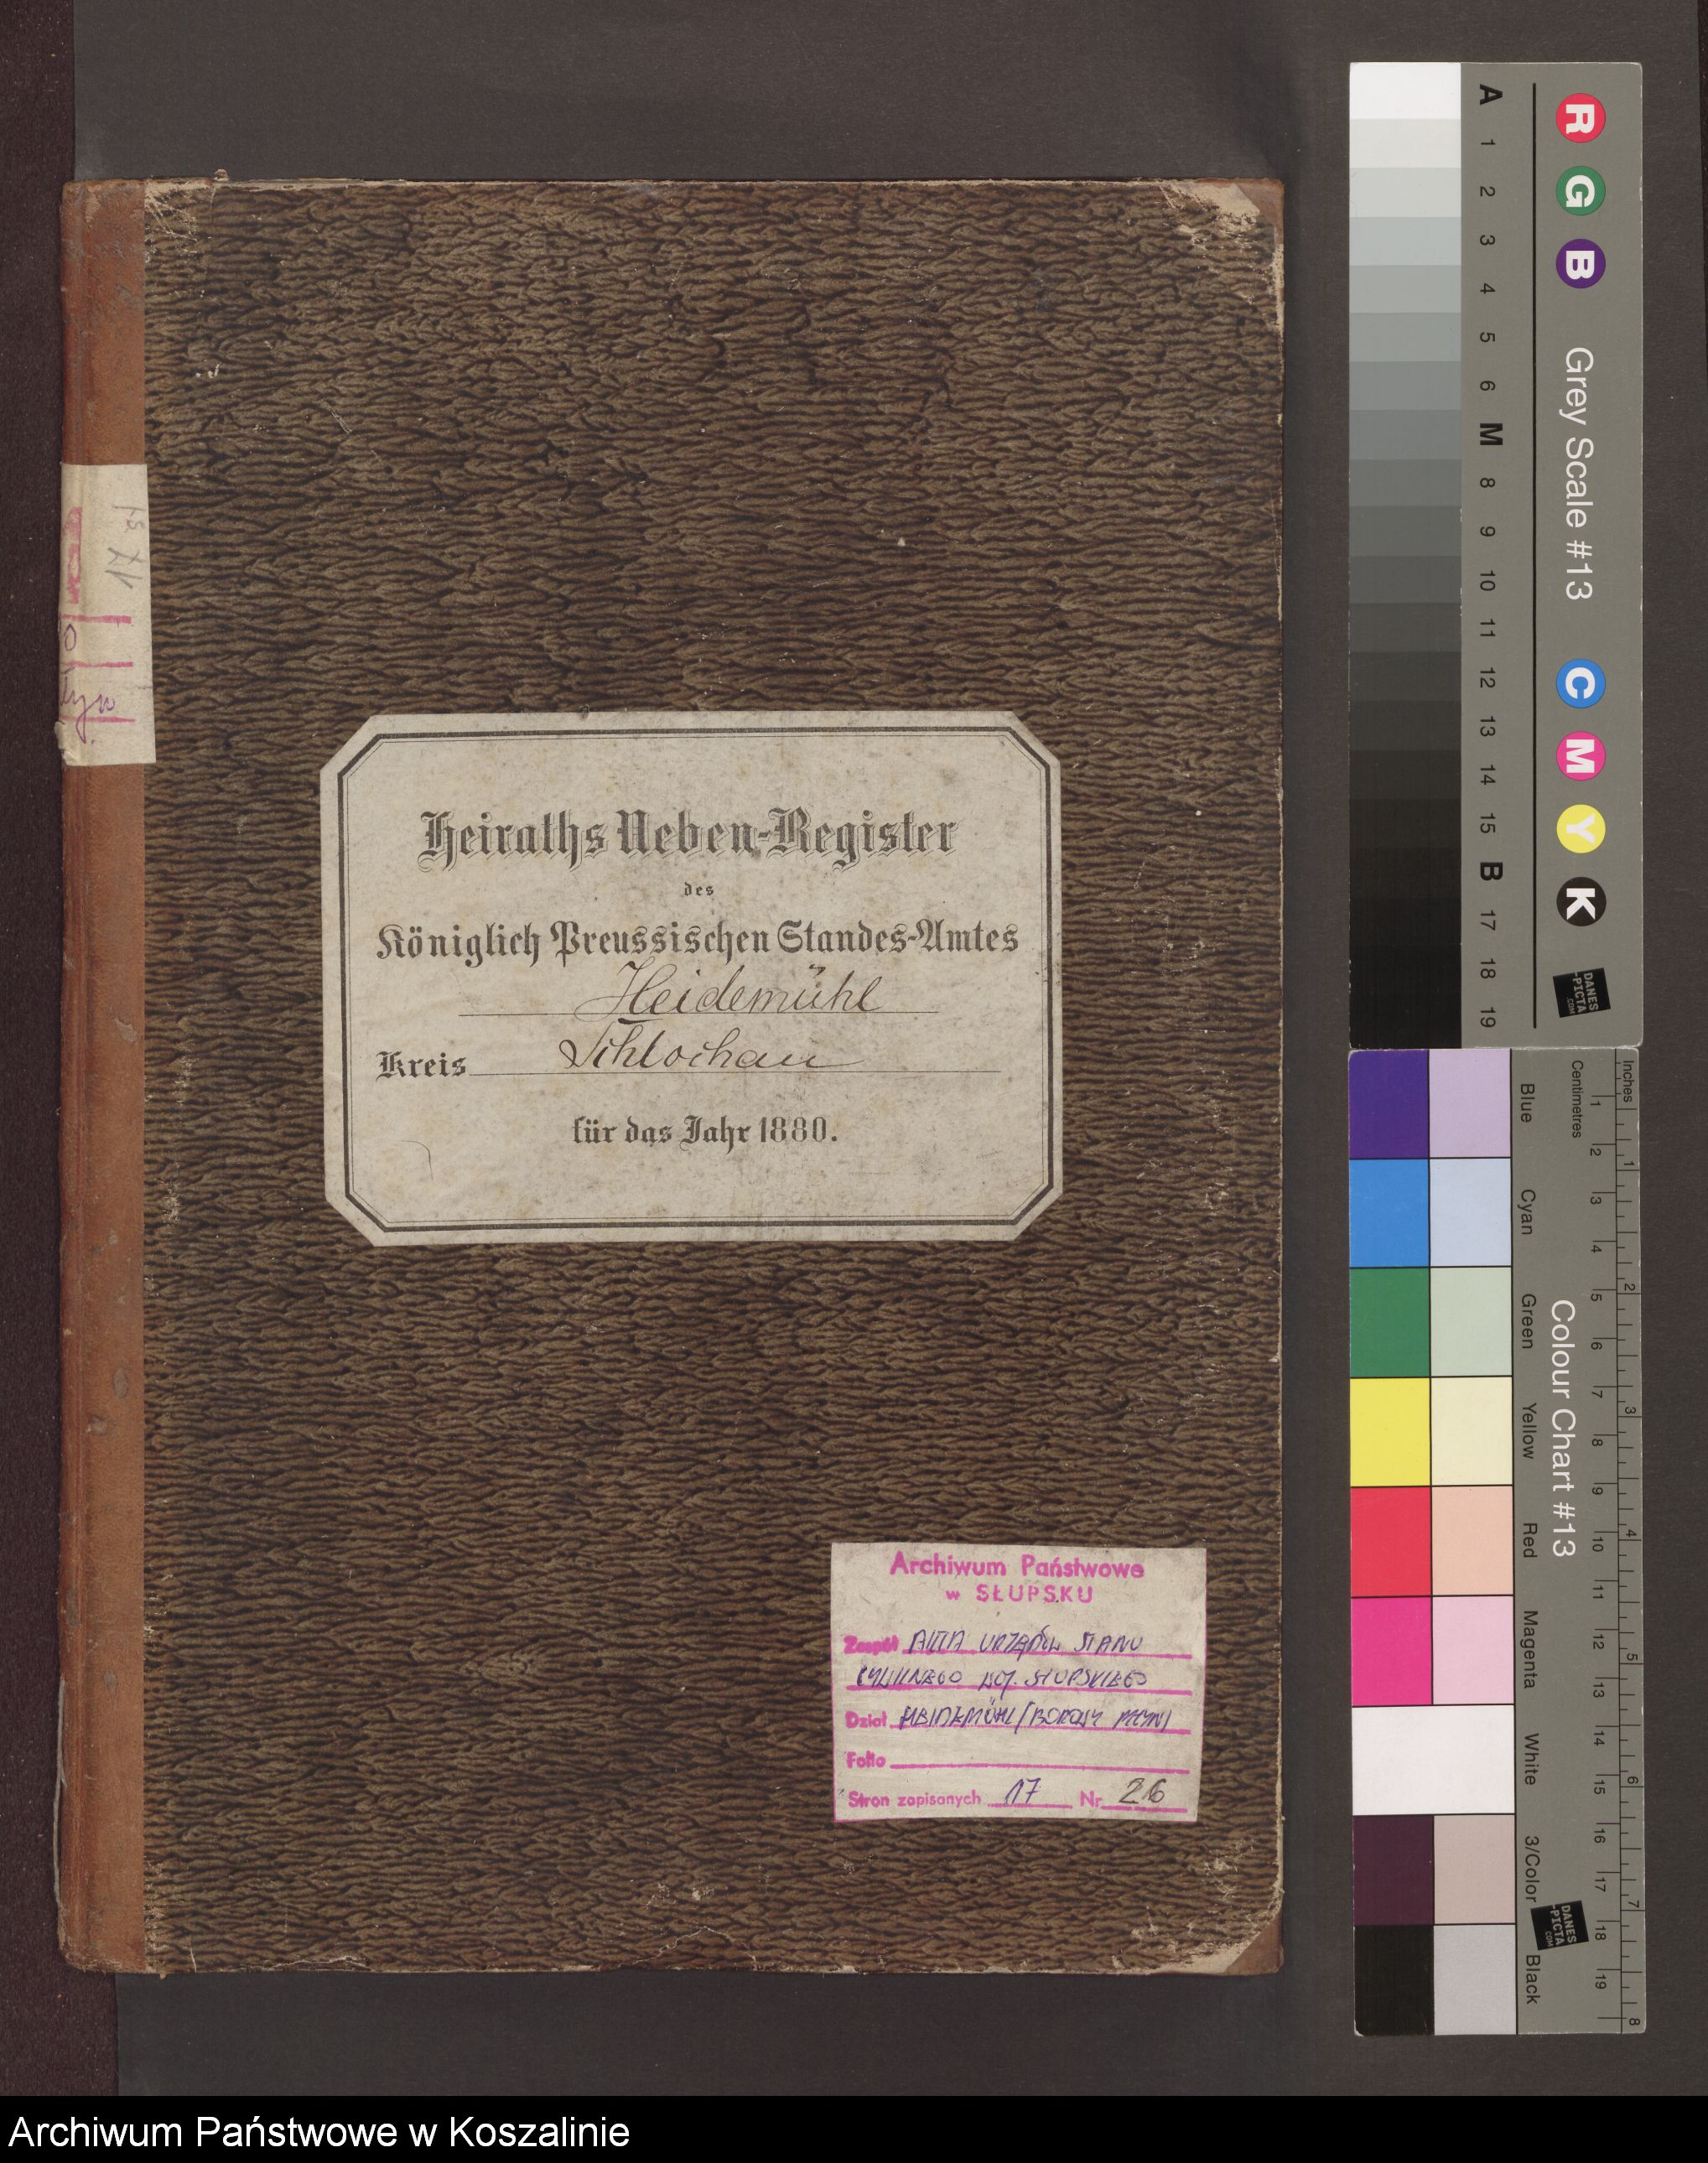 Heiraths Neben-Register
des
Königlich Preussischen Standes-Amtes
Heidemühl
Kreis Schlochau
für das Jahr 1880.
Archiwum Państwowe
w SŁUPSKU
Zespół AKTA URZĘDÓW STANU
CYWILNEGO WOJ. SŁUPSKIEGO
Dział HEIDEMÜHL/BOROWY MŁYN/
Folio
Stron zapisanych 17 Nr 26
A 1 2 3 4 5 6 M 8 9 10 11 12 13 14 15 B 17 18 19
R G B Grey Scale #13 C M Y K
DANES
-PICTA
.COM
Inches 1 2 3 4 5 6 7 8
Centimetres 1 2 3 4 5 6 7 8 9 10 11 12 13 14 15 16 17 18 19
Colour Chart #13
Blue Cyan Green Yellow Red Magenta White 3/Color Black
DANES
-PICTA
.COM
Archiwum Państwowe w Koszalinie